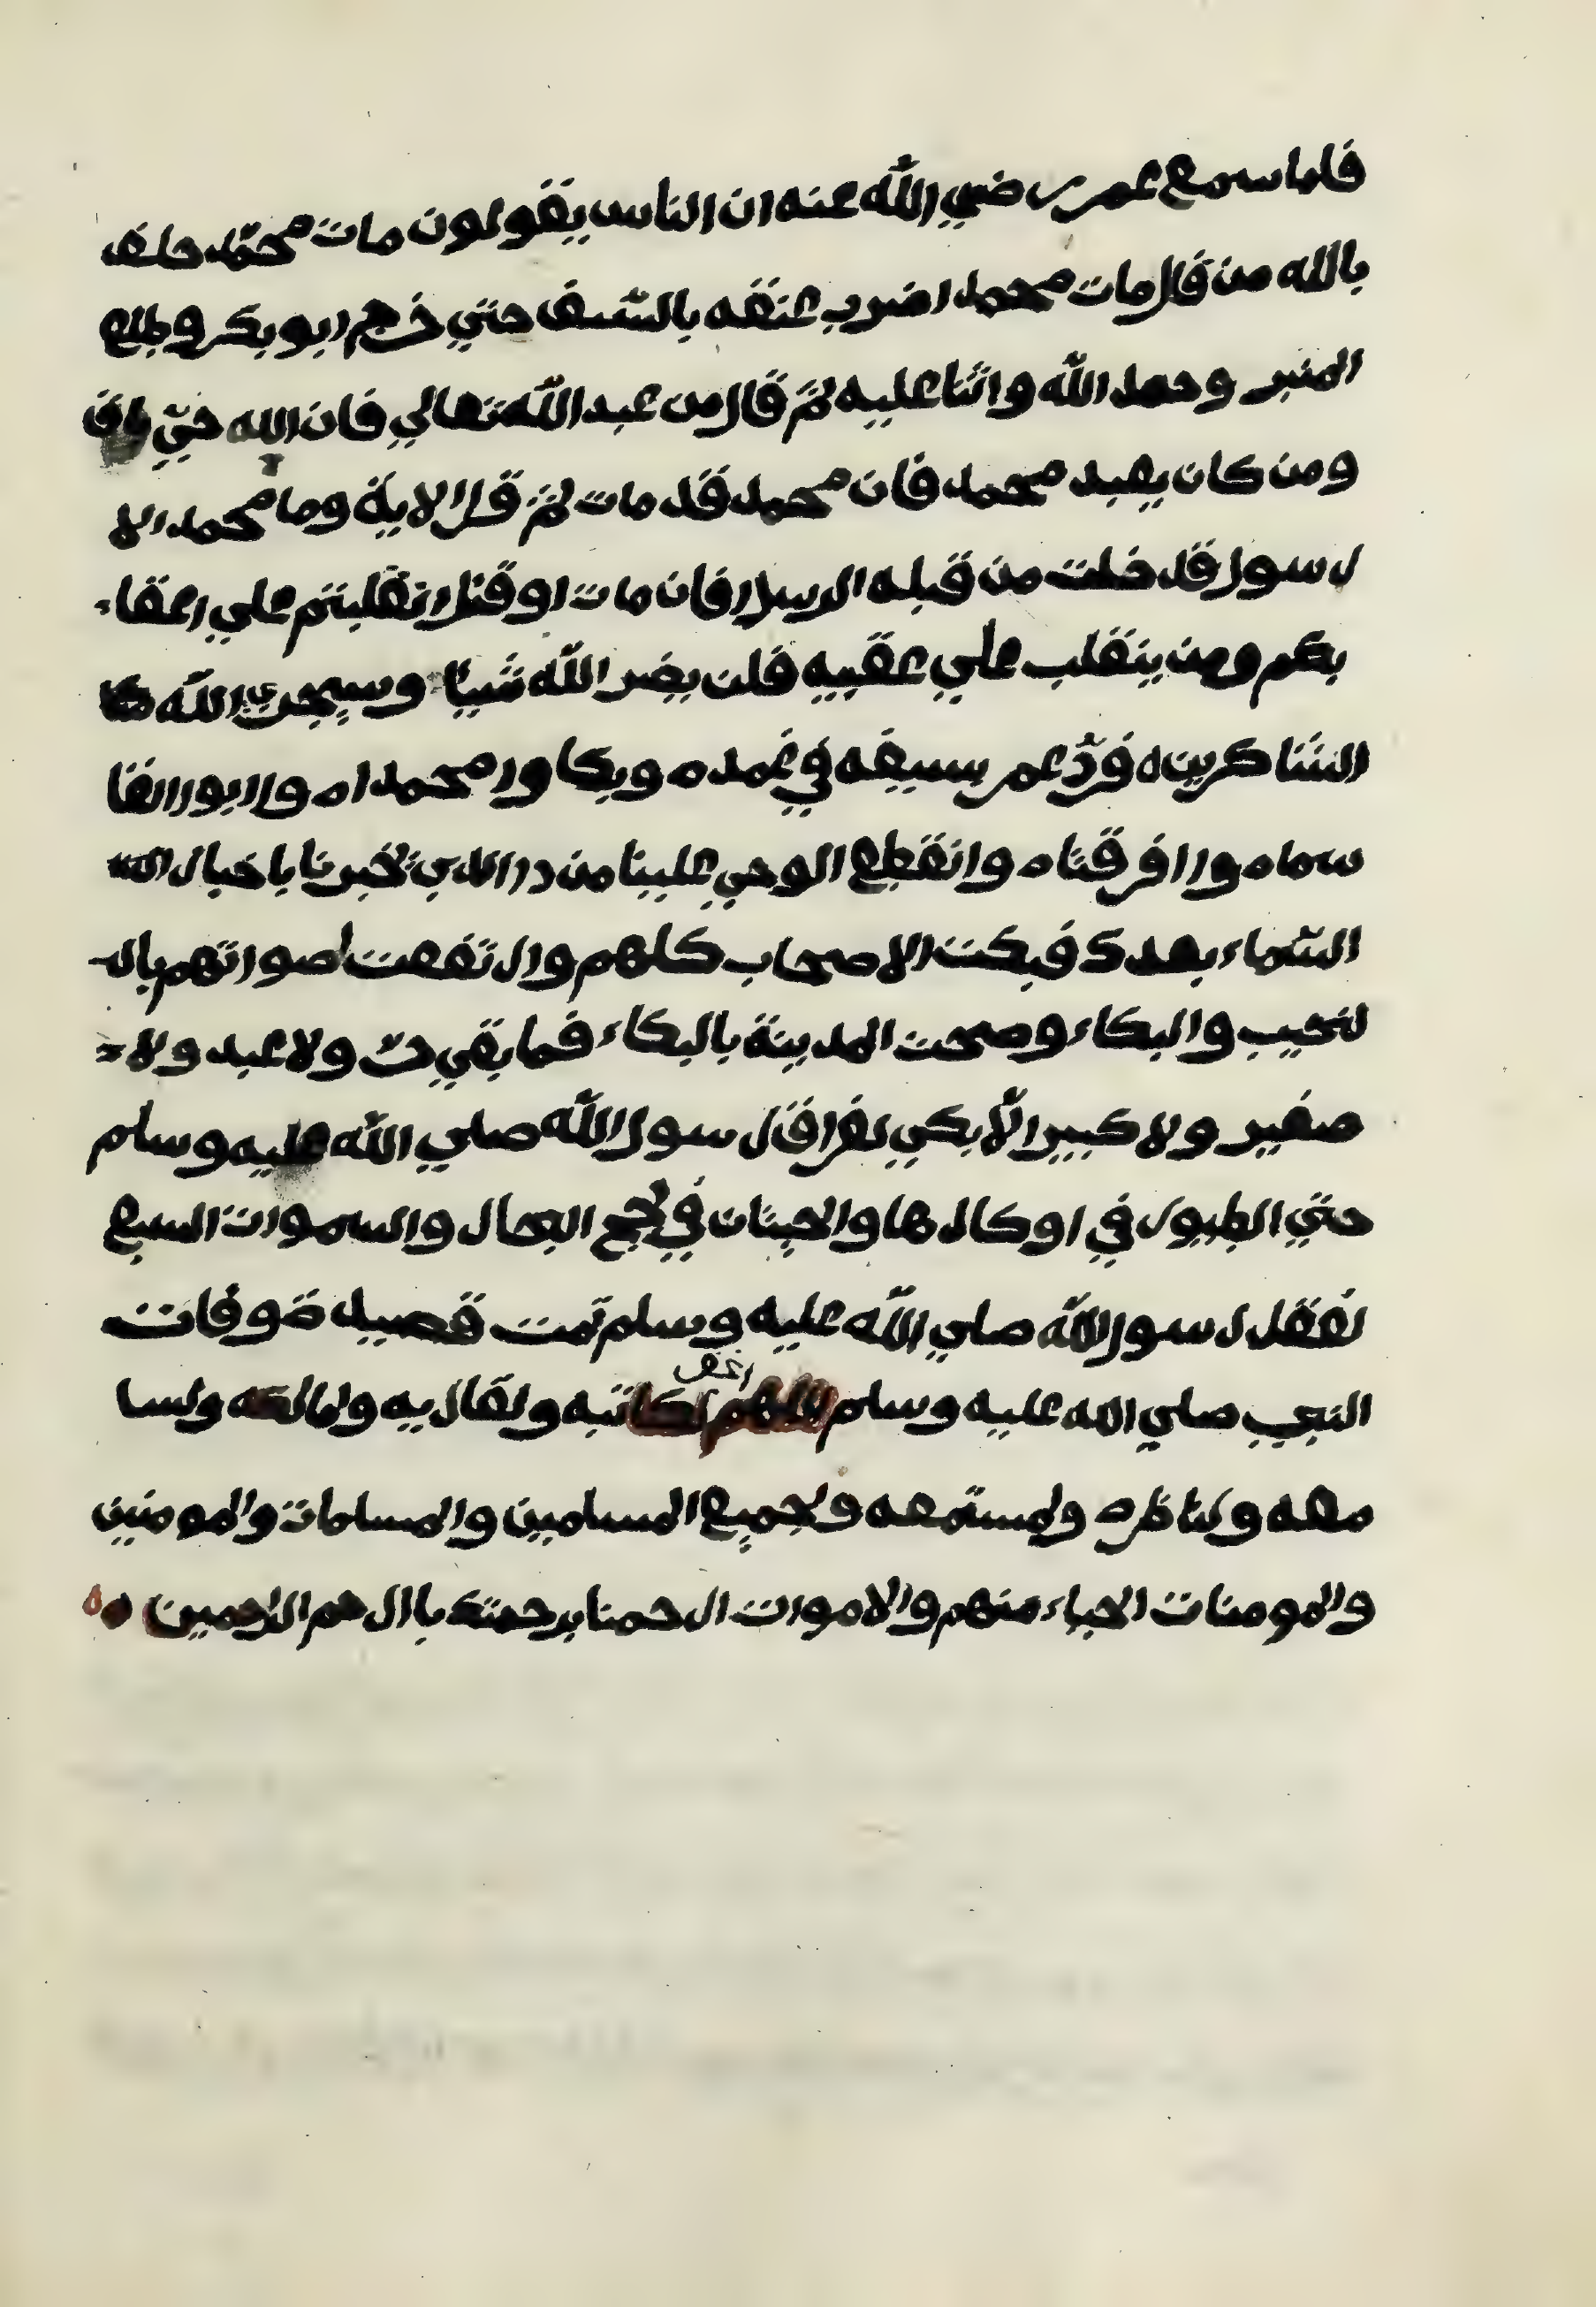 فلما سمع عمر رضي الله عنه ان الناس يقولون مات محمّد حلف
بالله من قال مات محمد اضرب عنقه بالسّيف حتي خرج ابو بكر وطلع
المنبر وحمد الله واثنا عليه ثمّ قال من عبد الله تعالي فان الله حيّ باق
ومن كان يعبد محمد فان محمد قد مات ثمّ قرا الاية وما محمد الا
رسول قد خلت من قبله الرسل افان مات او قتل انقلبتم علي اعقا
بكم ومن ينقلب علي عقبيه فلن يضر الله شيئا وسيجزي الله
الشاكرين ه فردّ عمر سيفه في غمده وبكا وا محمداه وا ابو القا
سماه وا افرقتاه وانقطع الوحي علينا من ذا الذي يخبرنا باخبار
السّماء بعدك فبكت الاصحاب كلهم وارتفعت اصواتهم بال
لنحيب والبكاء وضحت المدينة بالبكاء فما بقي حرّ ولا عبد ولا
صغير ولا كبير الّا بكي لفراق رسول الله صلي الله عليه وسلم
حتي الطيور في اوكارها والحيتان في لجج البحار والسموات السبع
لفقد رسول الله صلي الله عليه وسلم تمت قصيدة وفات
النبي صلي الله عليه وسلم اللهم اغفر لكاتبه ولقاريه ولمالكه ولسا
معه ولناظره ولمستمعه ولجميع المسلمين والمسلمات والمومنين
والمومنات الاحياء منهم والاموات ارحمنا برحمتك يا ارحم الرحمين